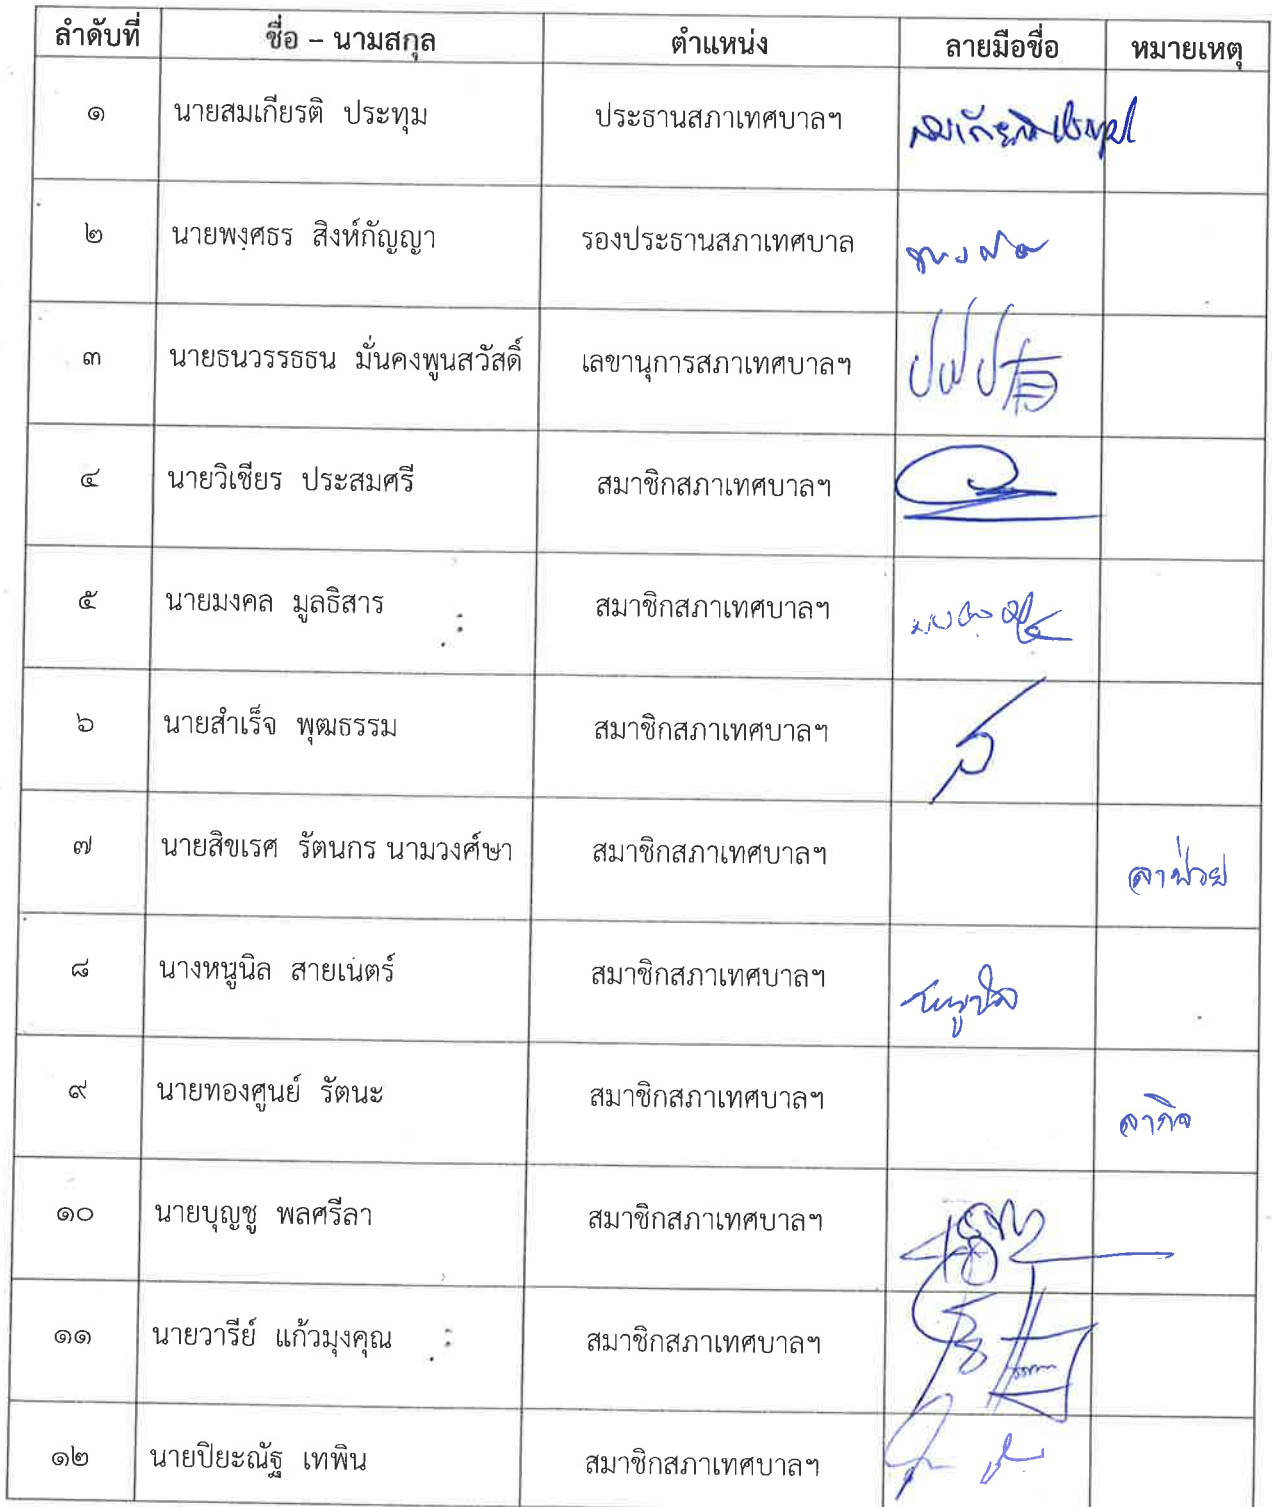 ลำดับที่ ชื่อ – นามสกุล ตำแหน่ง ลายมือชื่อ หมายเหตุ
๑ นายสมเกียรติ ประทุม ประธานสภาเทศบาลฯ สมเกียรติ ประทุม
๒ นายพงศธร สิงห์กัญญา รองประธานสภาเทศบาล
๓ นายธนวรรธธน มั่นคงพูนสวัสดิ์ เลขานุการสภาเทศบาลฯ
๔ นายวิเชียร ประสมศรี สมาชิกสภาเทศบาลฯ
๕ นายมงคล มูลธิสาร สมาชิกสภาเทศบาลฯ
๖ นายสำเร็จ พุฒธรรม สมาชิกสภาเทศบาลฯ
๗ นายสิขเรศ รัตนกร นามวงศ์ษา สมาชิกสภาเทศบาลฯ ลาป่วย
๘ นางหนูนิล สายเนตร์ สมาชิกสภาเทศบาลฯ หนูนิล
๙ นายทองศูนย์ รัตนะ สมาชิกสภาเทศบาลฯ ลากิจ
๑๐ นายบุญชู พลศรีลา สมาชิกสภาเทศบาลฯ
๑๑ นายวารีย์ แก้วมุงคุณ สมาชิกสภาเทศบาลฯ
๑๒ นายปิยะณัฐ เทพิน สมาชิกสภาเทศบาลฯ